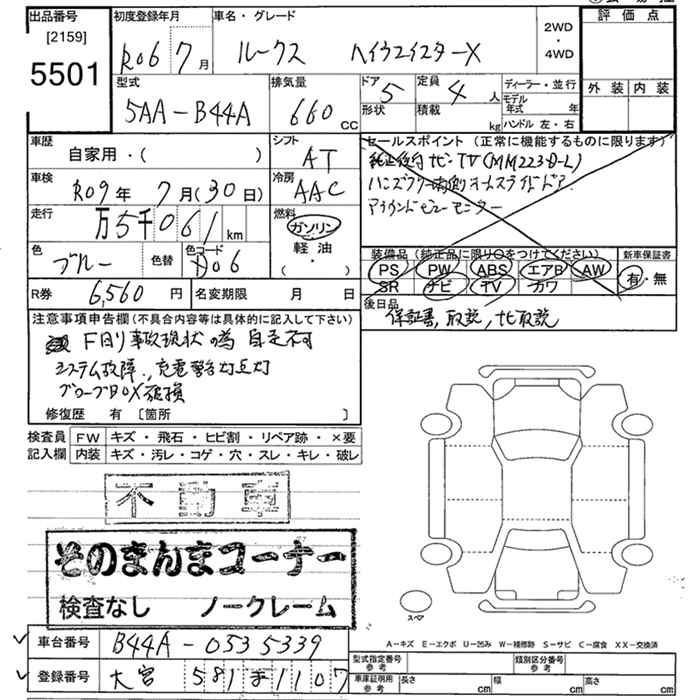 出品番号
[2159]
5501
初度登録年月
R06 7月
車名・グレード
ルークス ハイウェイスターX
2WD
・
4WD
評価点
外装 内装
型式
5AA-B44A
排気量
660 CC
ドア 5
形状
定員 4 人
積載 kg
ディーラー・並行
モデル年式 年
ハンドル 左・右
車歴
自家用・( )
シフト
AT
車検
R09年 7月(30日)
冷房
AAC
走行
万5千061 km
燃料
ガソリン
軽油
・
( )
色
ブルー
色替
色コード
R券 6,560 円
名変期限 月 日
セールスポイント(正常に機能するものに限ります)
アラウンドビューモニター
装備品(純正品に限り○をつけてください)
PS PW ABS エアB AW
SR ナビ TV カワ
新車保証書
有・無
後日品
保証書, 取説, ナビ取説
注意事項申告欄(不具合内容等は具体的に記入して下さい)
F廻り事故現状の為 自走不可
システム故障、充電警告灯点灯
グローブBOX破損
修復歴 有 〔箇所 〕
検査員記入欄
FW キズ・飛石・ヒビ割・リペア跡・×要
内装 キズ・汚レ・コゲ・穴・スレ・キレ・破レ
不動車
そのまんまコーナー
検査なし ノークレーム
スペア
A-キズ E-エクボ U-凹み W-補修跡 S-サビ C-腐食 XX-交換済
車台番号 B44A-0535339
登録番号 大宮 581 1107
型式指定番号
参考
類別区分番号
参考
車庫証明用
参考
長さ cm 幅 cm 高さ cm